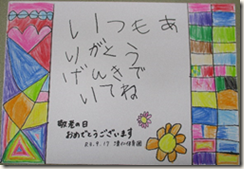 いつもあ
りがとう
げんきで
いてね
敬老の日
おめでとうございます